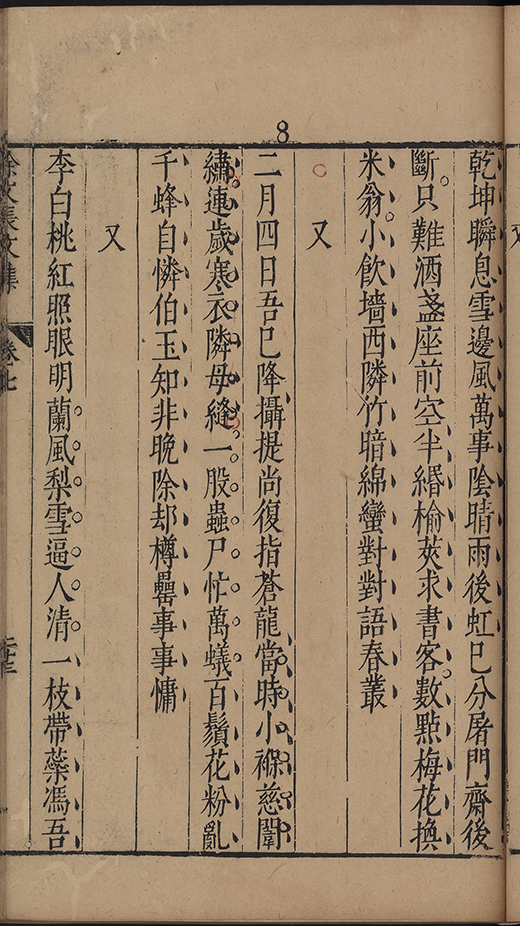 8
乾坤瞬息雪邊風萬事陰晴雨後虹巳分屠門齋後
斷只難酒盞座前空半緡榆莢求書客數㸃梅花換
米翁小飲墻西隣竹暗綿蠻對對語春叢
又
二月四日吾巳降攝提尚復指蒼龍當時小褓慈闈
繡連歲寒衣隣母縫一股蟲尸忙萬蟻百鬚花粉亂
千蜂自憐伯玉知非晚除却樽罍事事慵
又
李白桃紅照眼明蘭風梨雪逼人清一枝帶蘂馮吾
徐文長文集
卷七